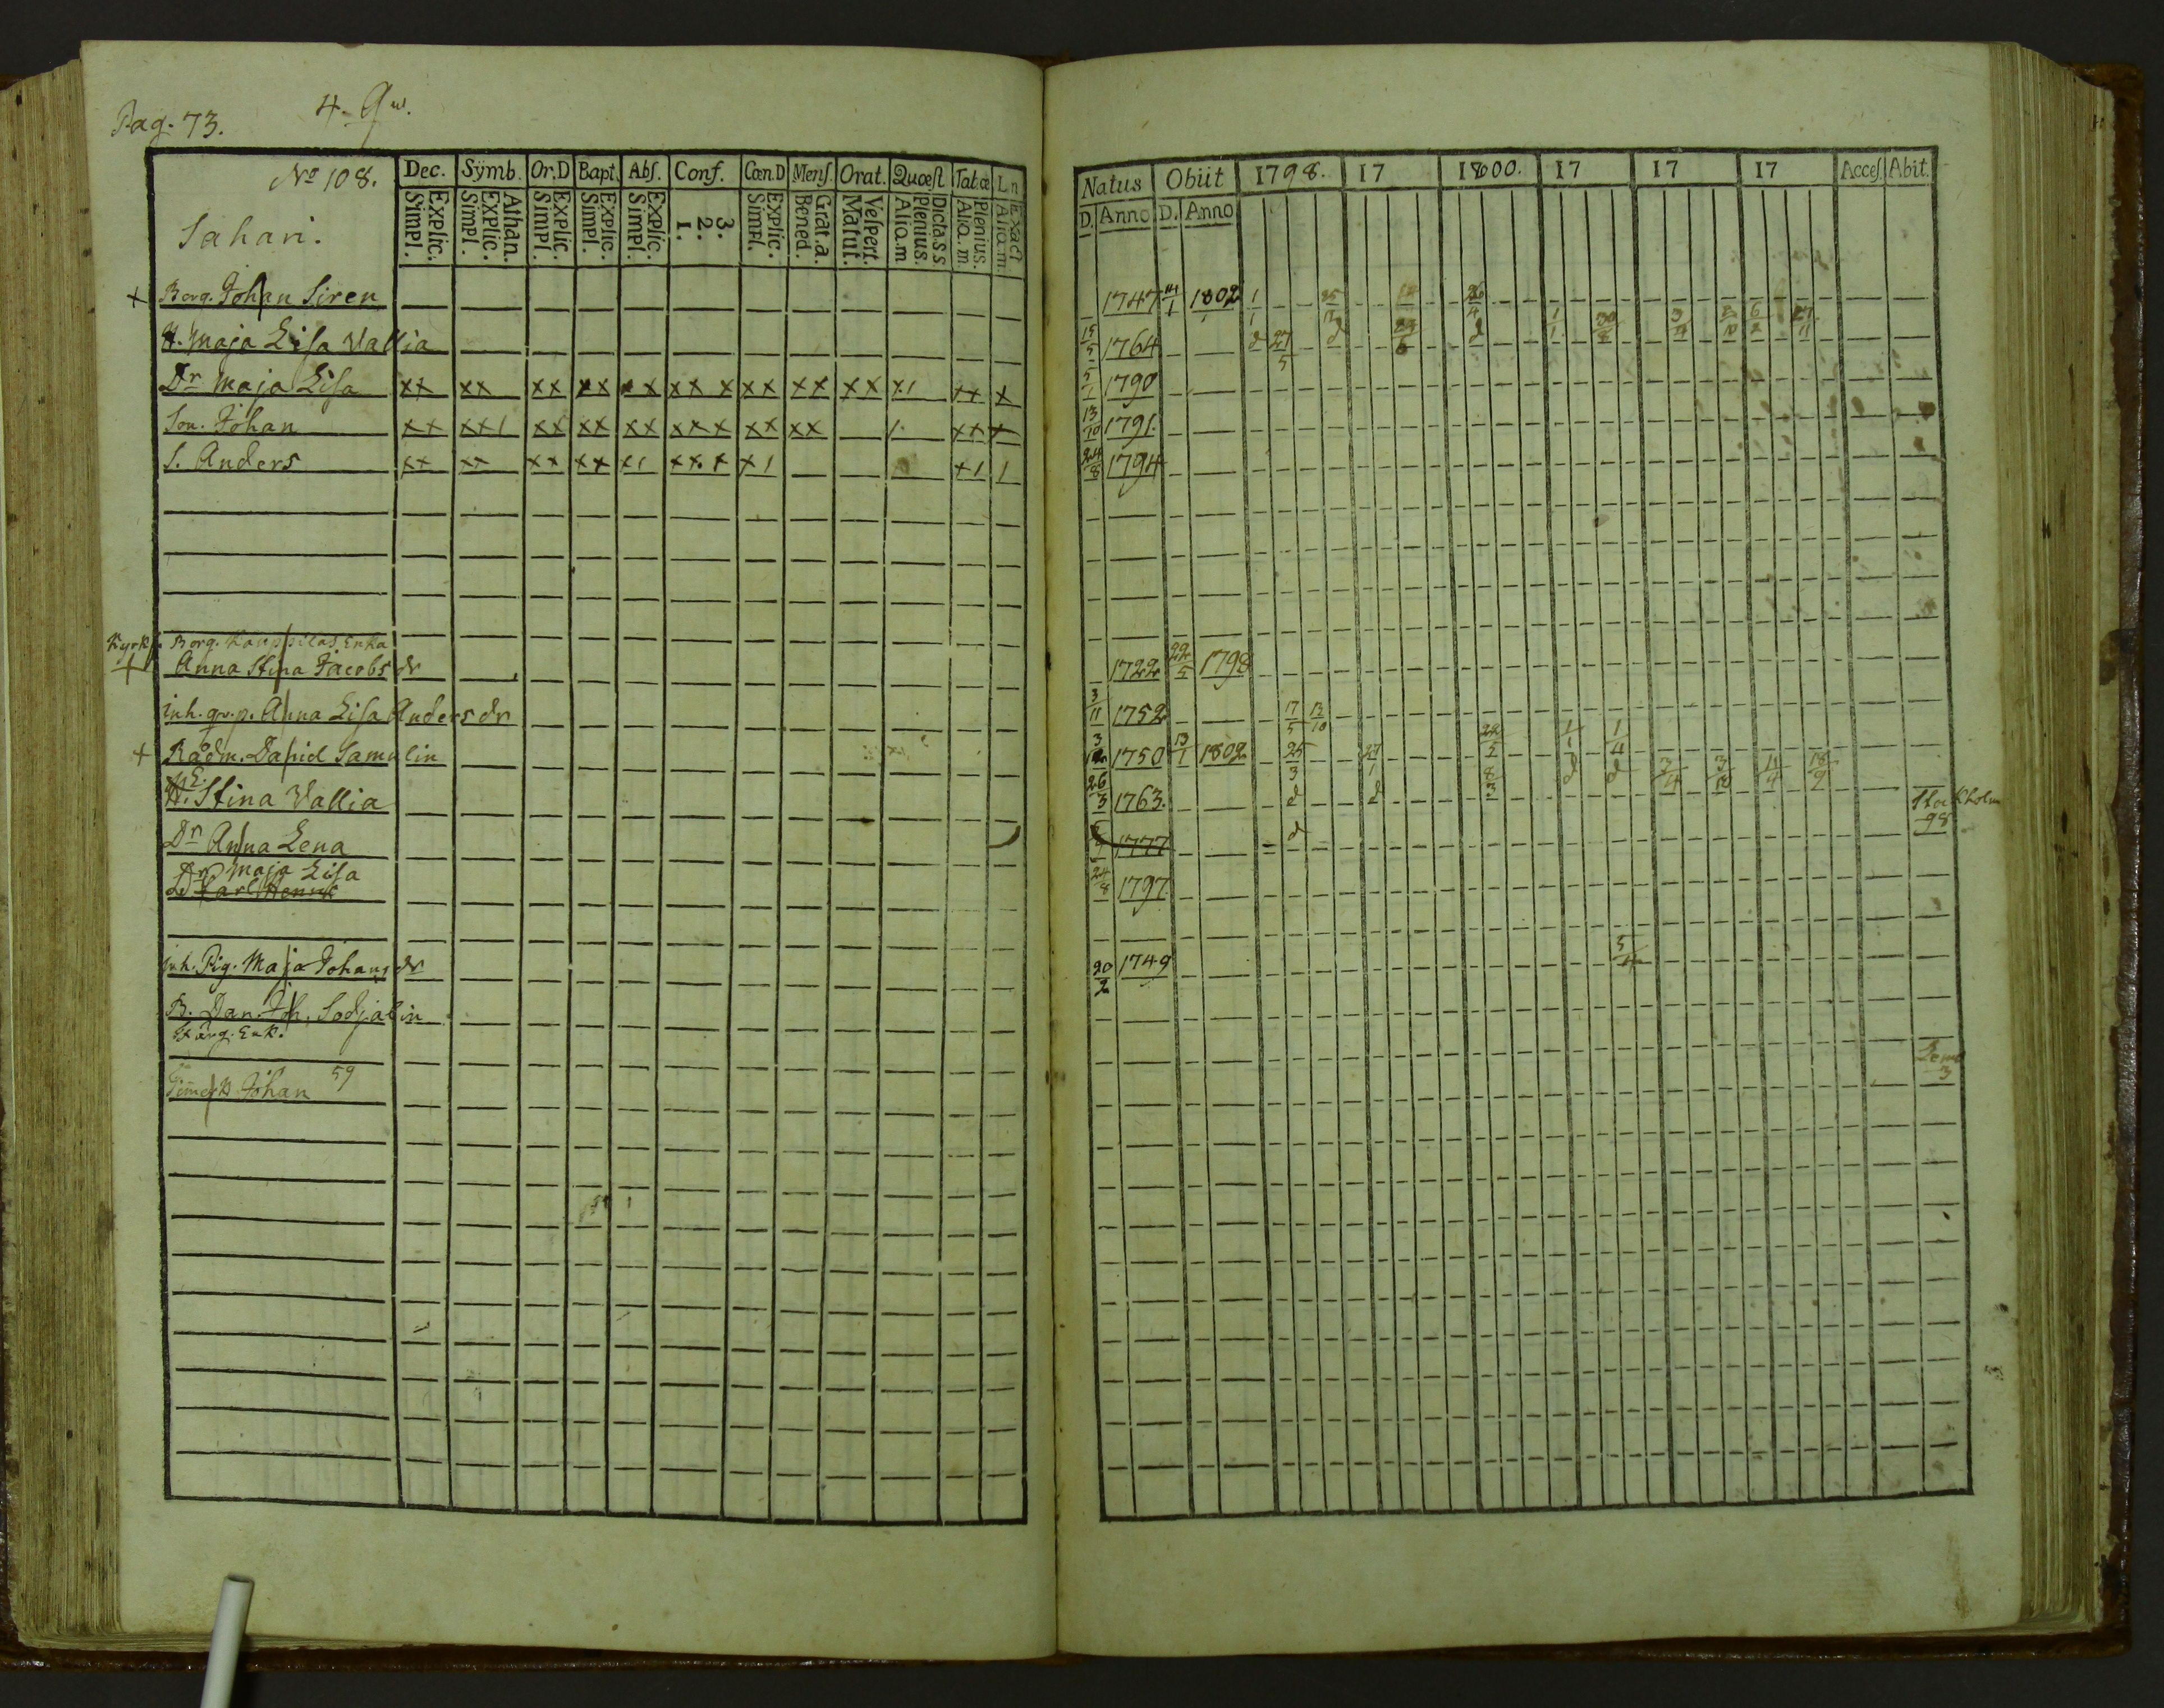 Pag. 73. 4. Qw.
Nº 108. Dec. Sÿmb. Or.D Bapt. Abſ. Conf. Cœn.D Menſ. Orat. Quœſt Tab.œ L.n
Sahari.
Explic. Simpl. Athan. Explic. Simpl. Explic. Simpl. Explic. Simpl. Explic. Simpl. 3. 2. 1. Explic. Simpl. Grat.a. Bened. Veſpert. Matut. Dicta.s.s. Plenius. Aliq.m Plenius. Aliq.m. Exact Aliq.m.
+ Borg. Johan Siren
H. Maja Lisa Vallia
Dr Maja Lisa xx xx xx xx xx xx x xx xx xx x1 xx x
Son. Johan xx xx1 xx xx xx xxx xx xx 1. xx x
S. Anders xx xx xx xx x1 xx x x1 x1 1
Kyrkf. Borg. Kauppilas Enka
+ Anna Stina Jacobs dr
inh. qv.p. Anna Lisa Anders dr
+ Rådm. David Samulin
H.E. Stina Vallia
Dr Anna Lena
Dr Maja Lisa
inh. Pig. Maja Johans dr
B. Dan. Joh. Sodjalin
Enk.
Johan 59
Natus Obiit 1798. 17 1800. 17 17 17 Acceſ. Abit.
D. Anno D. Anno
1747 1802 1/1 26/4
15/5 1764 d 27/5 d 23/6 d 1/1 3/4 6/2
5/1 1790
13/10 1791.
24/8 1794
1722 22/5 1798
3/11 1752 17/5 13/10
3/12 1750 13/1 1802 25/3 27/1 22/5 1/1 1/4
26/3 1763. d d 8/3 d d 3/4 3/10 11/4 18/9
1777 d Stockholm 98
24/8 1797
20/2 1749 5/4
3